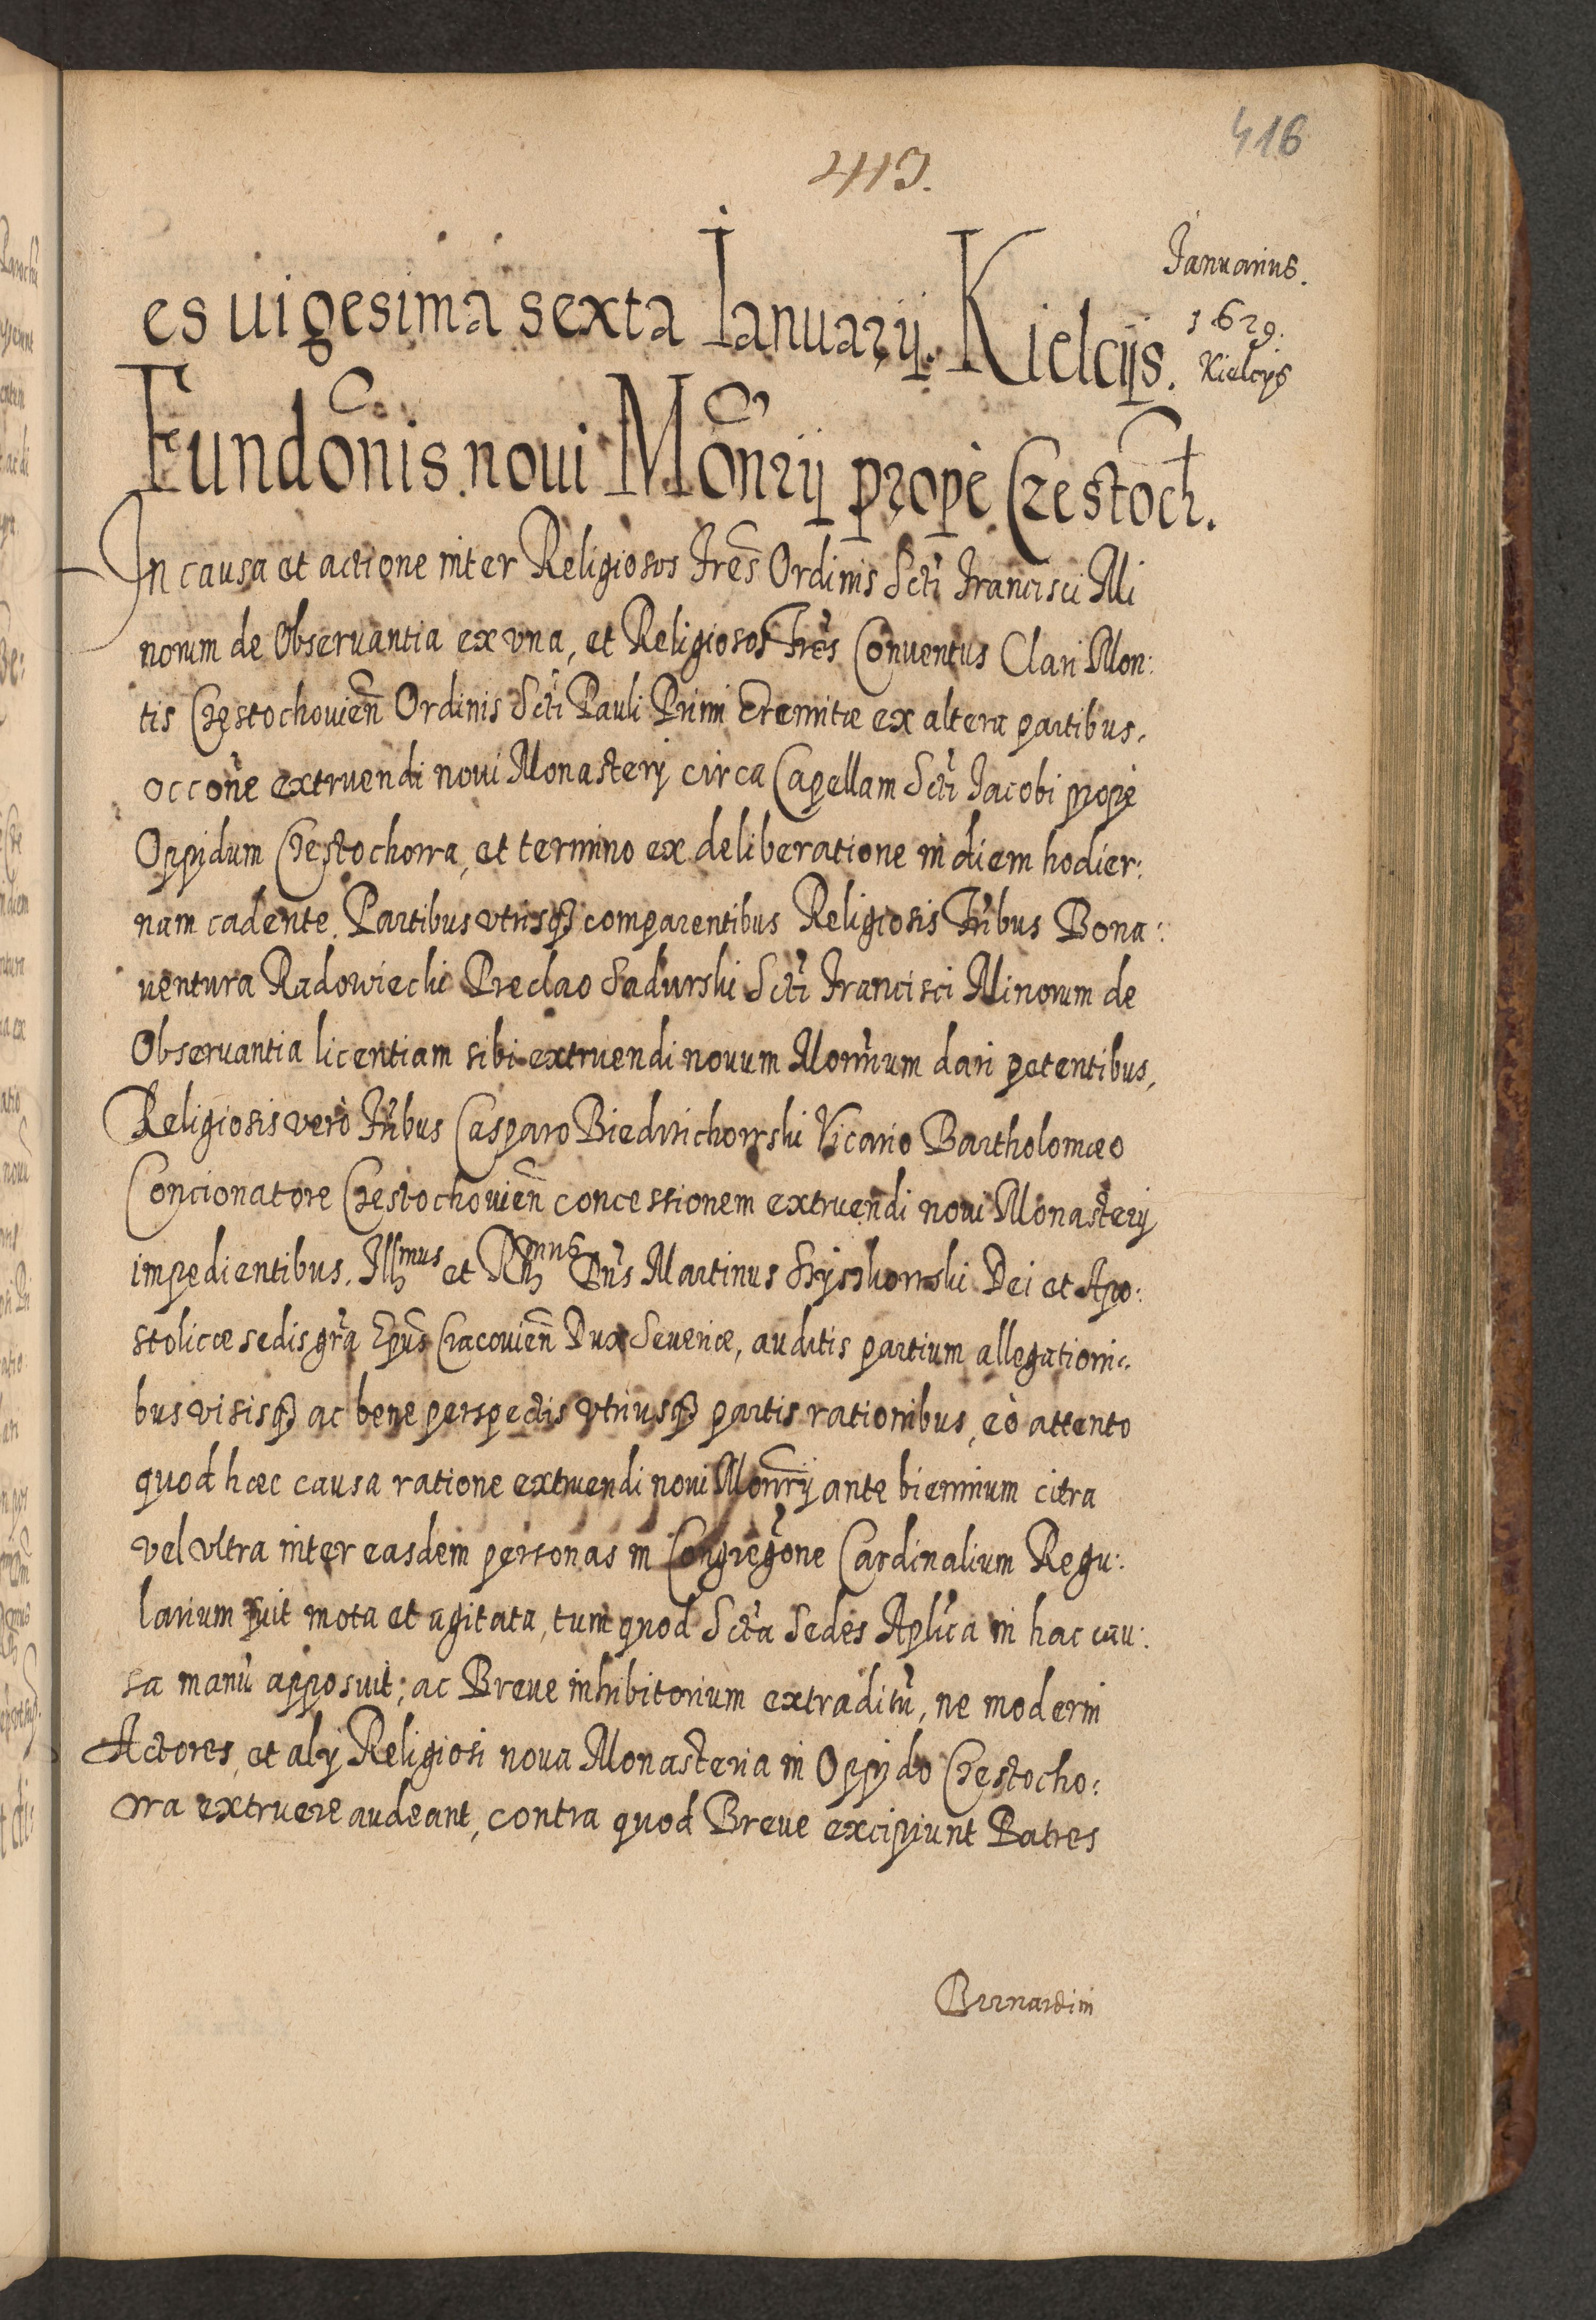 416
413.
Januarius.
1629.
Kielcijs
es uigesima sexta Ianuarij. Kielcijs.
Fundōnis noui Mōnrij propè Czestoch.
In causa et actione inter Religiosos Frēs Ordinis Scti Francisci Mi
norum de Obseruantia ex vna, et Religiosos Frēs Conuentus Clari Mon:
tis Czestochouien̄ Ordinis Scti Pauli Primi Eremitæ ex altera partibus,
occōne extruendi noui Monasterij circa Capellam Scti Jacobi propè
Oppidum Czestochowa, et termino ex deliberatione in diem hodier:
nam cadente. Partibus vtrisq3 comparentibus Religiosis Fribus Bona:
uentura Radowiecki Preclao Sadurski Scti Francisci Minorum de
Obseruantia licentiam sibi extruendi nouum Monrium dari petentibus,
Religiosis verò Fribus Casparo Biedrichowski Vicario Bartholomæo
Concionatore Czestochouien̄ concessionem extruendi noui Monasterij
impedientibus. Illmus et Rmus Dn̄s Martinus Szyszkowski Dei et Apo:
stolicæ sedis grā Epūs Cracouien̄ Dux Seueriæ, auditis partium allegationi:
bus visisq3 ac bene perspectis vtriusq3 partis rationibus, eò attento
quod hæc causa ratione extruendi noui Monrij ante biennium citra
vel vltra inter easdem personas in Congregōne Cardinalium Regu:
larium fuit mota et agitata, tum quod Scta Sedes Aplica in hac cau:
sa manū apposuit; ac Breue inhibitorium extraditū, ne moderni
Actores, et alij Religiosi noua Monasteria in Oppido Czestocho:
wa extruere audeant, contra quod Breue excipiunt Patres
Bernardini